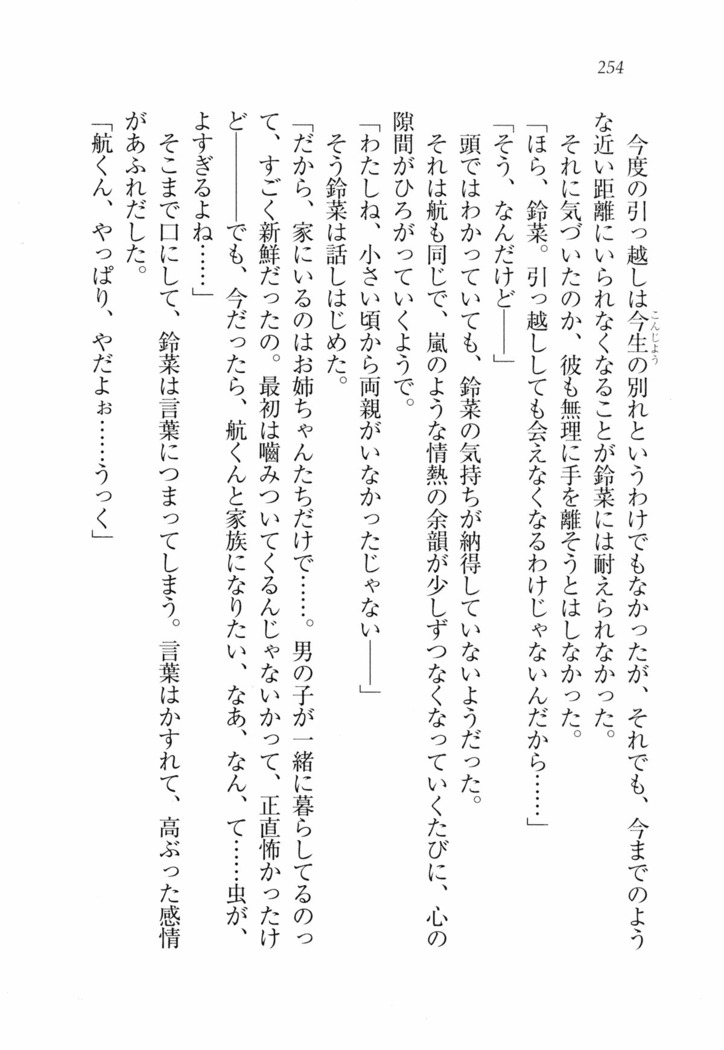 254
今度の引っ越しは今生の別れというわけでもなかったが、それでも、今までのよう
こんじょう
な近い距離にいられなくなることが鈴菜には耐えられなかった。
それに気づいたのか、彼も無理に手を離そうとはしなかった。
「ほら、鈴菜。引っ越ししても会えなくなるわけじゃないんだから……」
「そう、なんだけど――」
頭ではわかっていても、鈴菜の気持ちが納得していないようだった。
それは航も同じで、嵐のような情熱の余韻が少しずつなくなっていくたびに、心の
隙間がひろがっていくようで。
「わたしね、小さい頃から両親がいなかったじゃない――」
そう鈴菜は話しはじめた。
「だから、家にいるのはお姉ちゃんたちだけで……。男の子が一緒に暮らしてるのっ
て、すごく新鮮だったの。最初は嚙みついてくるんじゃないかって、正直怖かったけ
ど――でも、今だったら、航くんと家族になりたい、なあ、なん、て……虫が、
よすぎるよね……」
そこまで口にして、鈴菜は言葉につまってしまう。言葉はかすれて、高ぶった感情
があふれだした。
「航くん、やっぱり、やだよぉ……うっく」